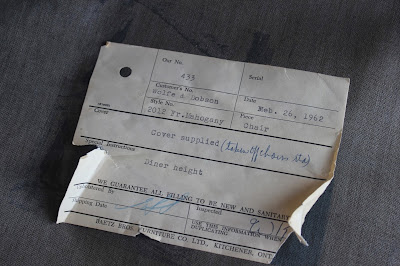 Our No. Serial
433
Customer's No. Date
Wolfe & Dobson Feb. 26, 1962
Style No. Piece
2012 Fr.Mahogany Chair
Cover
Cover supplied
Special Instructions
Diner height
WE GUARANTEE ALL FILLING TO BE NEW AND SANITARY
Inspected
Shipping Date
USE THIS INFORMATION WHEN
DUPLICATING
BAETZ BROS. FURNITURE CO. LTD., KITCHENER, ONT